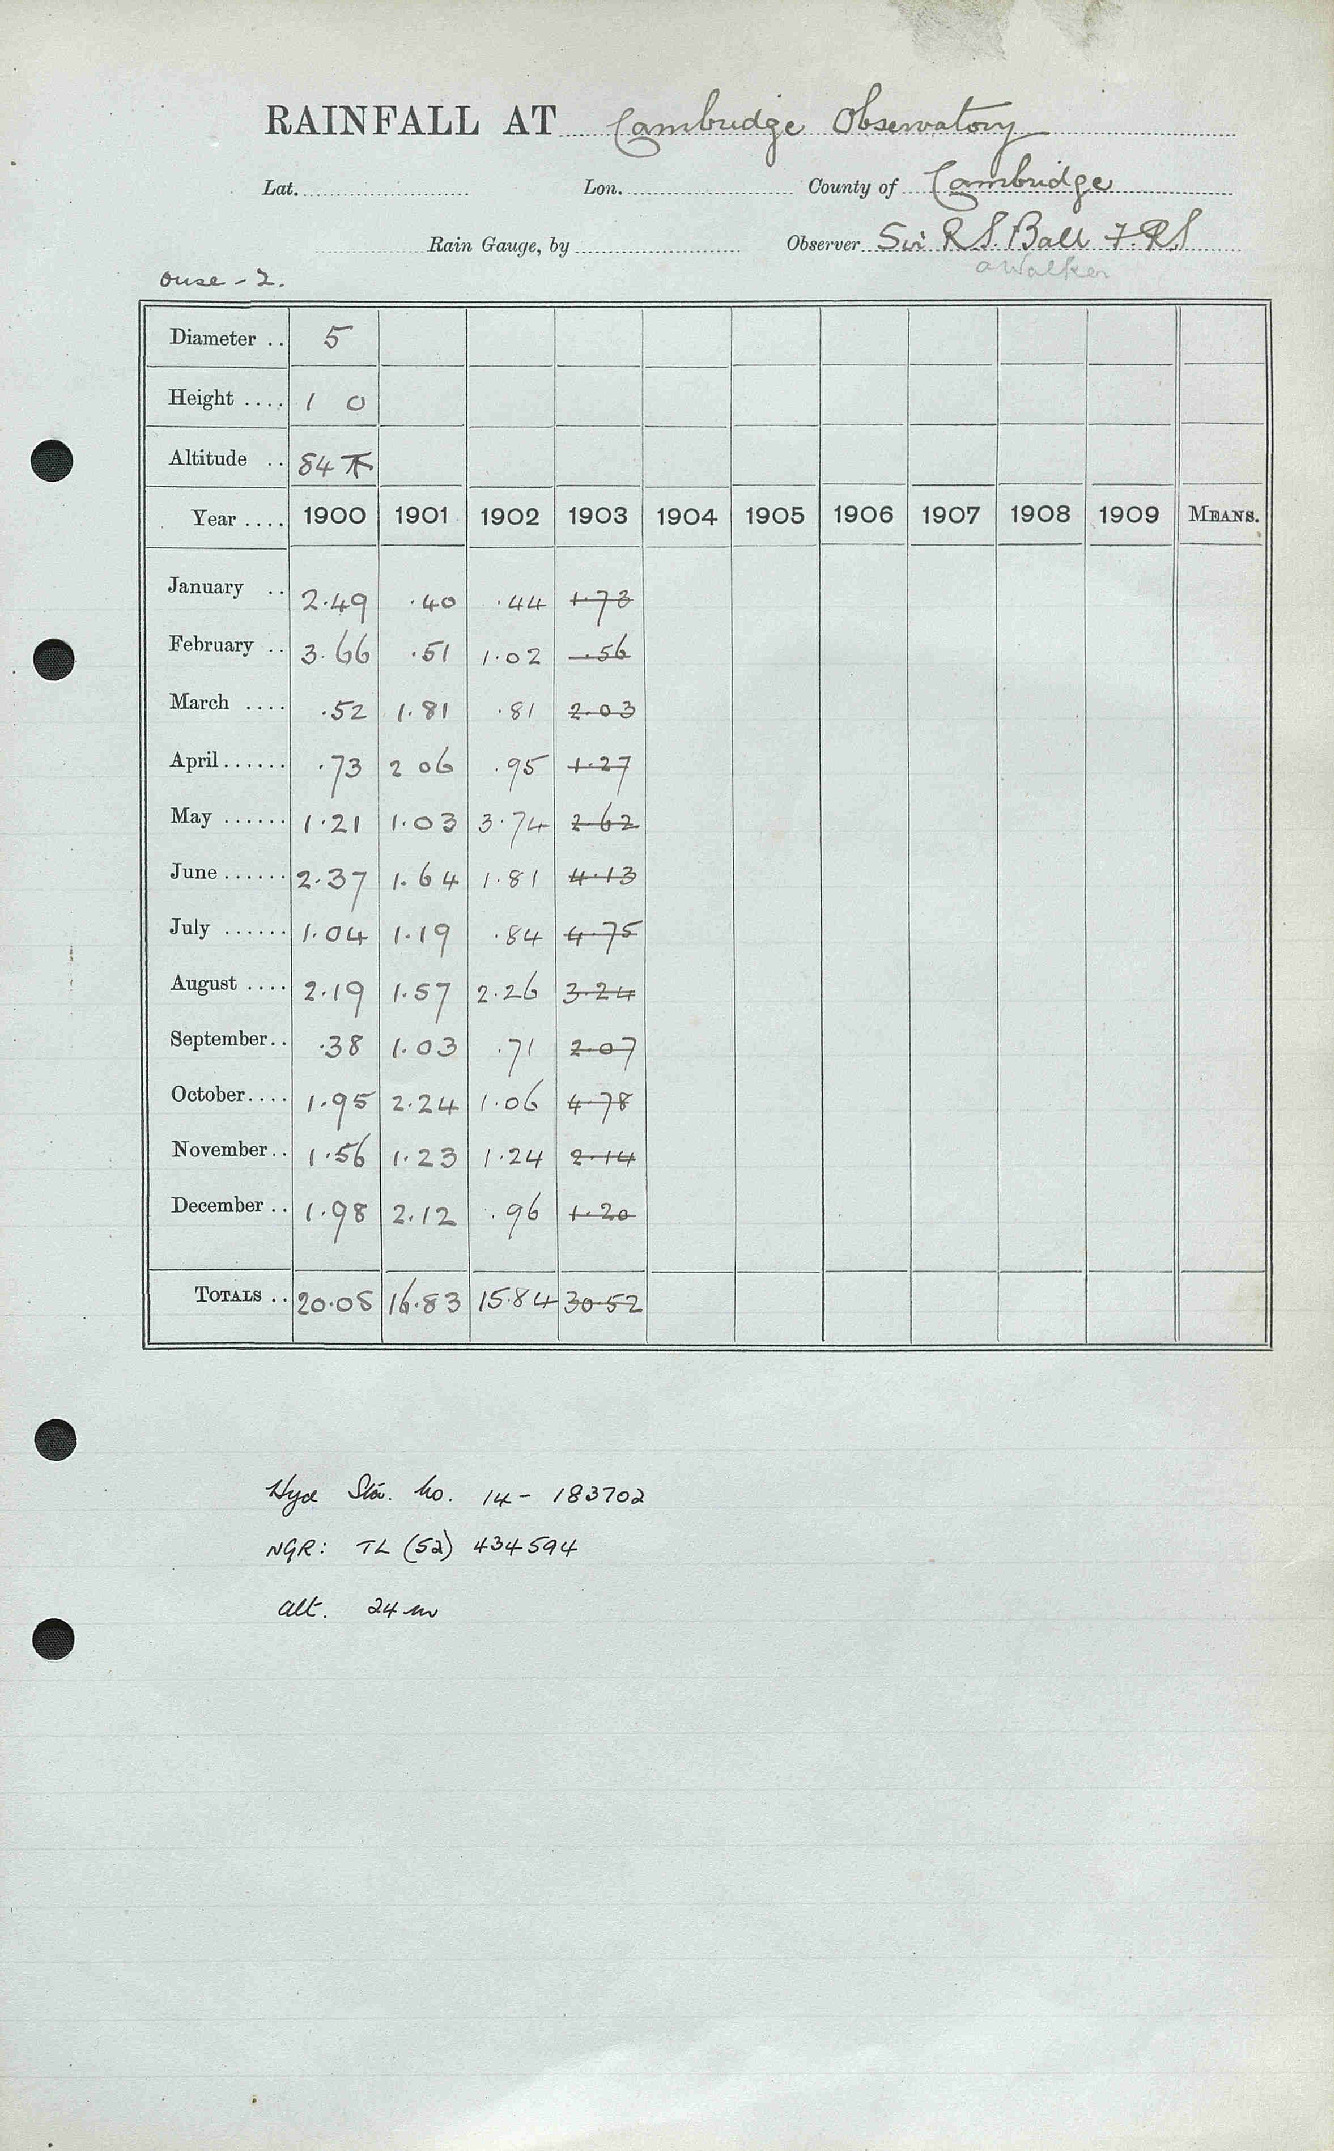 RAINFALL AT Cambridge Observatory
Lat. Lon. County of Cambridge
Rain Gauge, by Observer Sir R S. Ball F.R.S
A Walker
Ouse - 2.
Diameter .. 5
Height .... 1 0
Altitude .. 84
Year .... 1900 1901 1902 1903 1904 1905 1906 1907 1908 1909 MEANS.
January .. 2.49 .40 .44 1.73
February .. 3.66 .51 1.02 .56
March .... .52 1.81 .81 2.03
April...... .73 2 06 .95 1.27
May ...... 1.21 1.03 3.74 2 62
June...... 2.37 1.64 1.81 4.13
July ...... 1.04 1.19 .84 4 75
August .... 2.19 1.57 2.26 3.24
September.. .38 1.03 .71 2.07
October.... 1.95 2.24 1.06 4.78
November.. 1.56 1.23 1.24 2.14
December .. 1.98 2.12 .96 1.20
TOTALS .. 20.08 16.83 15.84 30.52
Hyd Stn. No. 14- 183702
NGR: TL (52) 434594
alt. 24 m